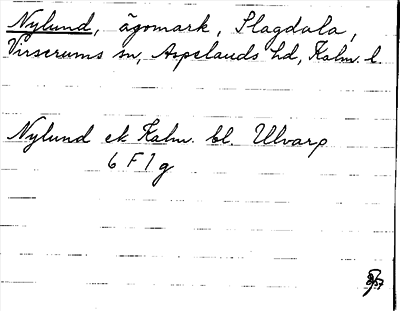 Nylund, ägomark, Slagdala,
Virserums sn, Aspelands hd, Kalm. l.
Nylund ek Kalm. bl. Ulvarp
6 F 1 g